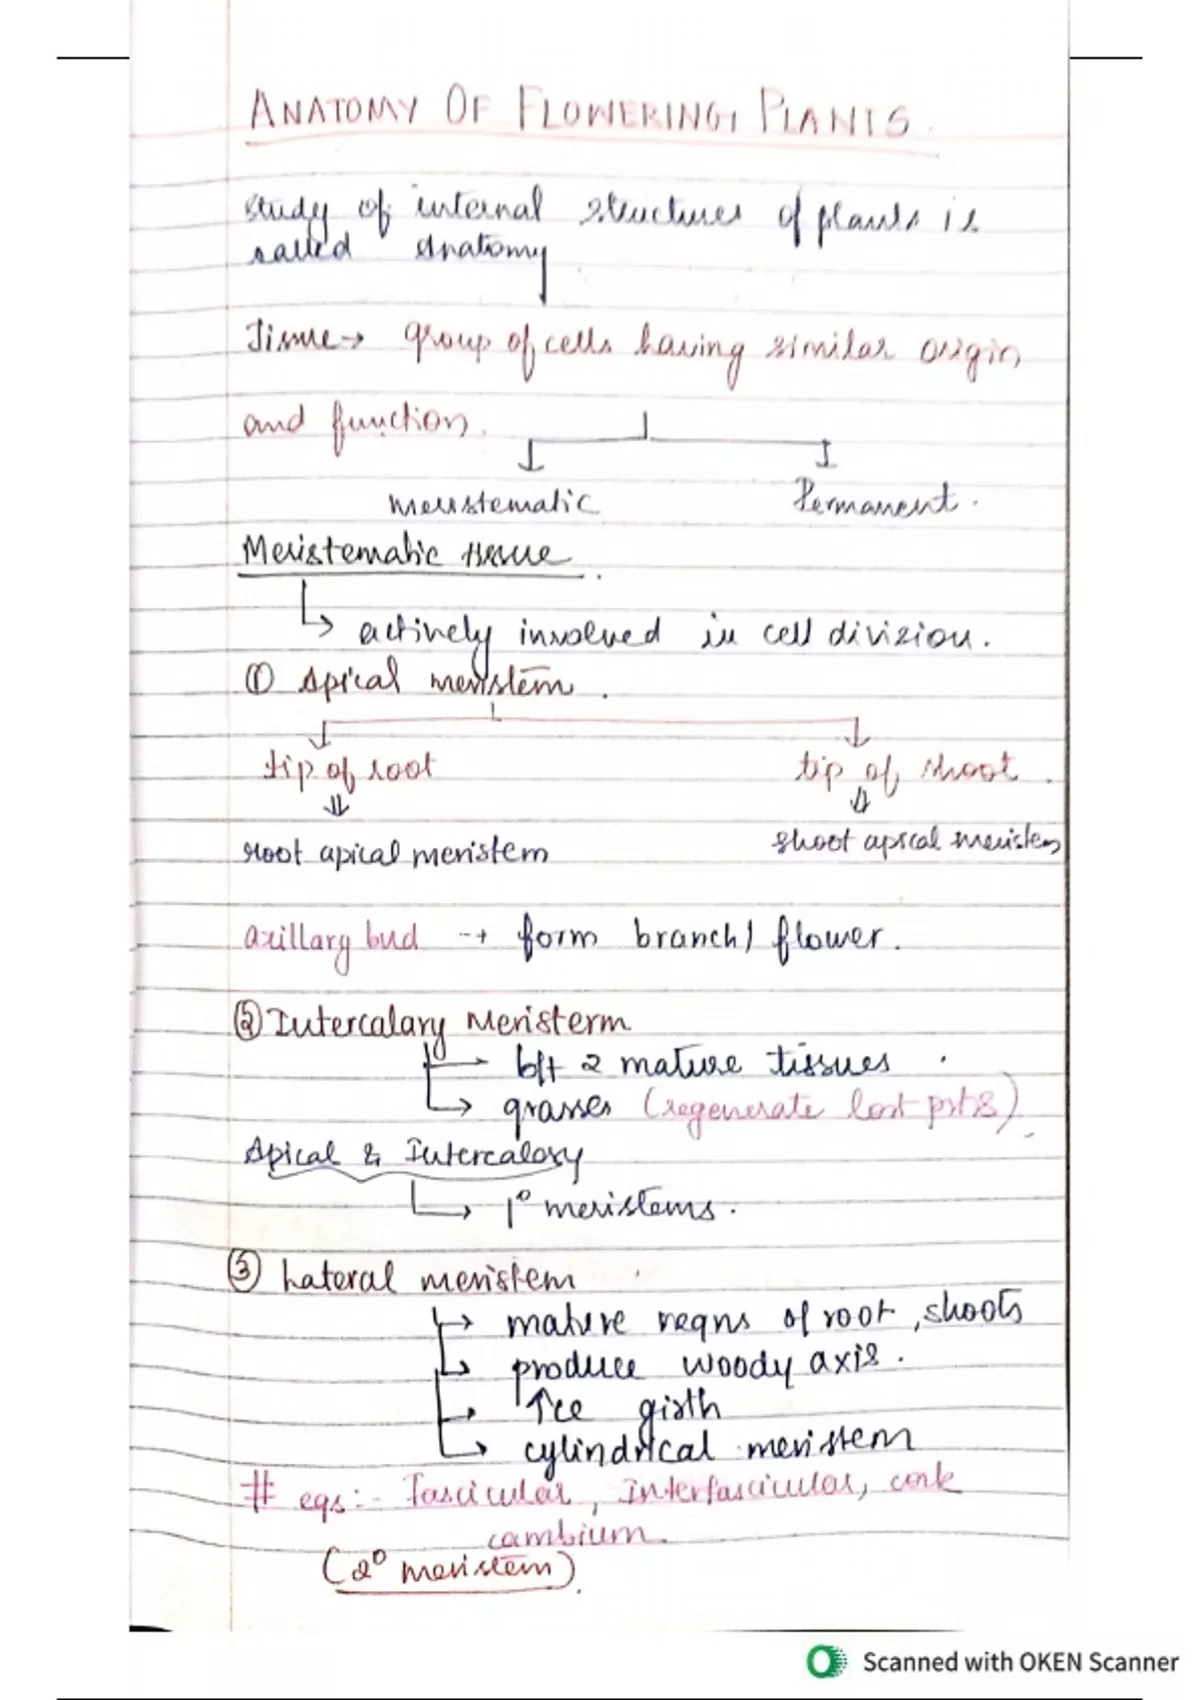 ANATOMY OF FLOWERING PLANTS.
study of internal structures of plants is
called Anatomy
Tissue→ group of cells having similar origin
and function.
meristematic Permanent.
Meristematic tissue.
↳ actively involved in cell division.
① Apical meristem.
tip of root tip of shoot.
root apical meristem shoot apical meristem
axillary bud → form branch/ flower.
② Intercalary Meristerm
→ b/t 2 mature tissues.
→ grasses (regenerate lost prts)
Apical & Intercalary
↳ 1° meristems.
③ Lateral meristem
→ mature regns of root, shoots
→ produce woody axis.
→ ↑ce girth
→ cylindrical meristem
# egs:- Fascicular, Interfascicular, cork
cambium.
(2° meristem).
Scanned with OKEN Scanner